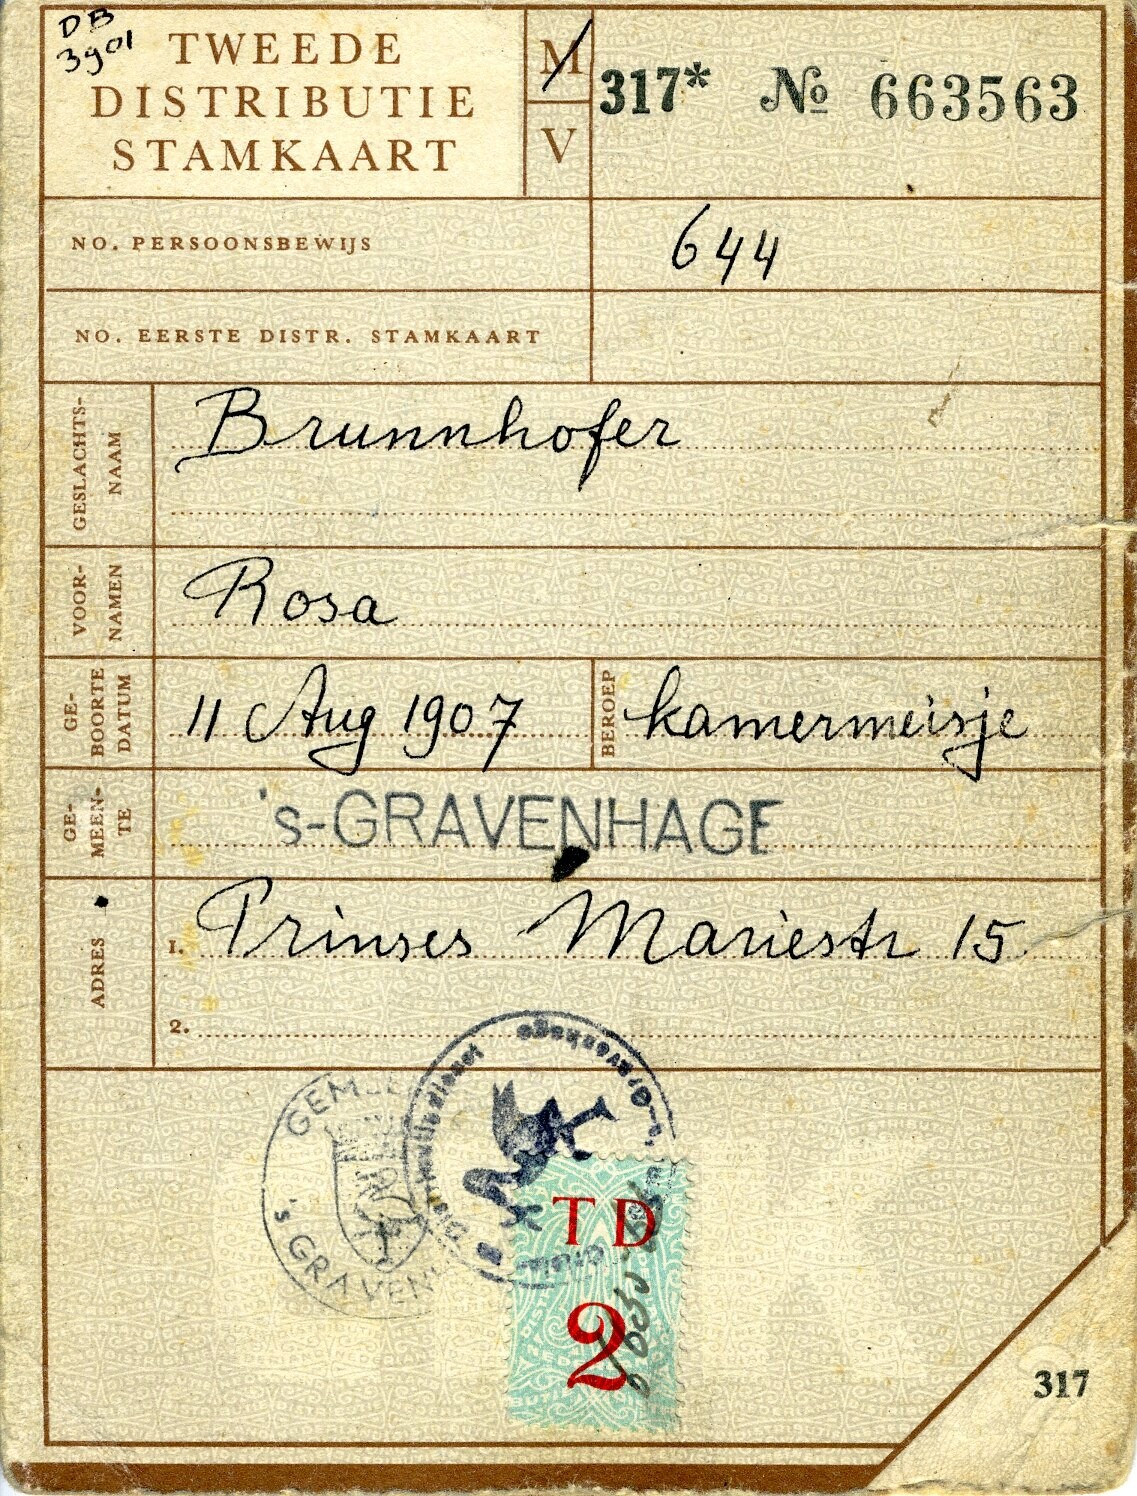 DB
3901
TWEEDE
DISTRIBUTIE
STAMKAART
M
V
317* № 663563
NO. PERSOONSBEWIJS
644
NO. EERSTE DISTR. STAMKAART
GESLACHTS-
NAAM
Brunnhofer
VOOR-
NAMEN
Rosa
GE-
BOORTE
DATUM
11 Aug 1907
BEROEP
kamermeisje
GE-
MEEN-
TE
's-GRAVENHAGE
ADRES
1. Prinses Mariestr 15
2.
GEM
's GRAVEN
Distributiedienst
's-Gravenhage
TD
2
317